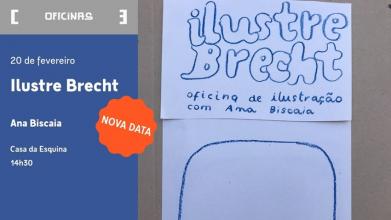 [ OFICINAS ]
20 de fevereiro
Ilustre Brecht
Ana Biscaia
NOVA DATA
Casa da Esquina
14h30
ilustre
Brecht
oficina de ilustração
com Ana Biscaia